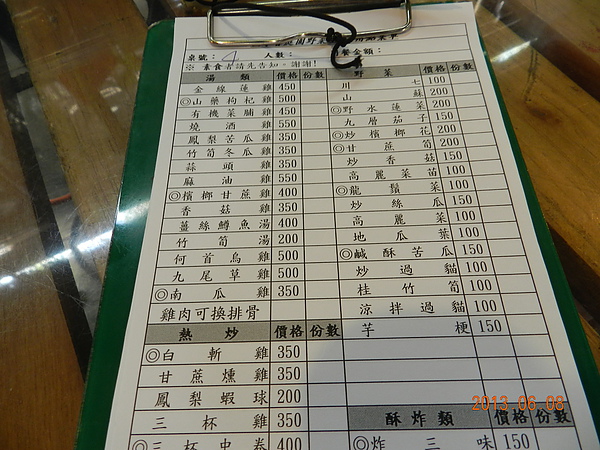 桌號： 4 人數： 用餐金額：
※ 素食者請先告知。謝謝!
湯類 價格 份數
金線蓮雞 450
◎山藥枸杞雞 500
有機菜脯雞 450
燒酒雞 550
鳳梨苦瓜雞 350
竹筍冬瓜雞 350
蒜頭雞 350
麻油雞 550
◎檳榔甘蔗雞 400
香菇雞 350
薑絲鱒魚湯 400
竹筍湯 200
何首烏雞 500
九尾草雞 500
◎南瓜雞 350
雞肉可換排骨
熱炒 價格 份數
◎白斬雞 350
甘蔗燻雞 350
鳳梨蝦球 200
三杯雞 350
◎三杯中卷 400
野菜 價格 份數
川七 100
山蘇 200
◎野水蓮菜 200
九層茄子 100
◎炒檳榔花 200
◎甘蔗筍 200
炒香菇 150
高麗菜苗 100
◎龍鬚菜 100
炒絲瓜 150
高麗菜 100
地瓜葉 100
◎鹹酥苦瓜 150
炒過貓 100
桂竹筍 100
涼拌過貓 100
芋梗 150
酥炸類 價格 份數
◎炸三味 150
2013.06.08